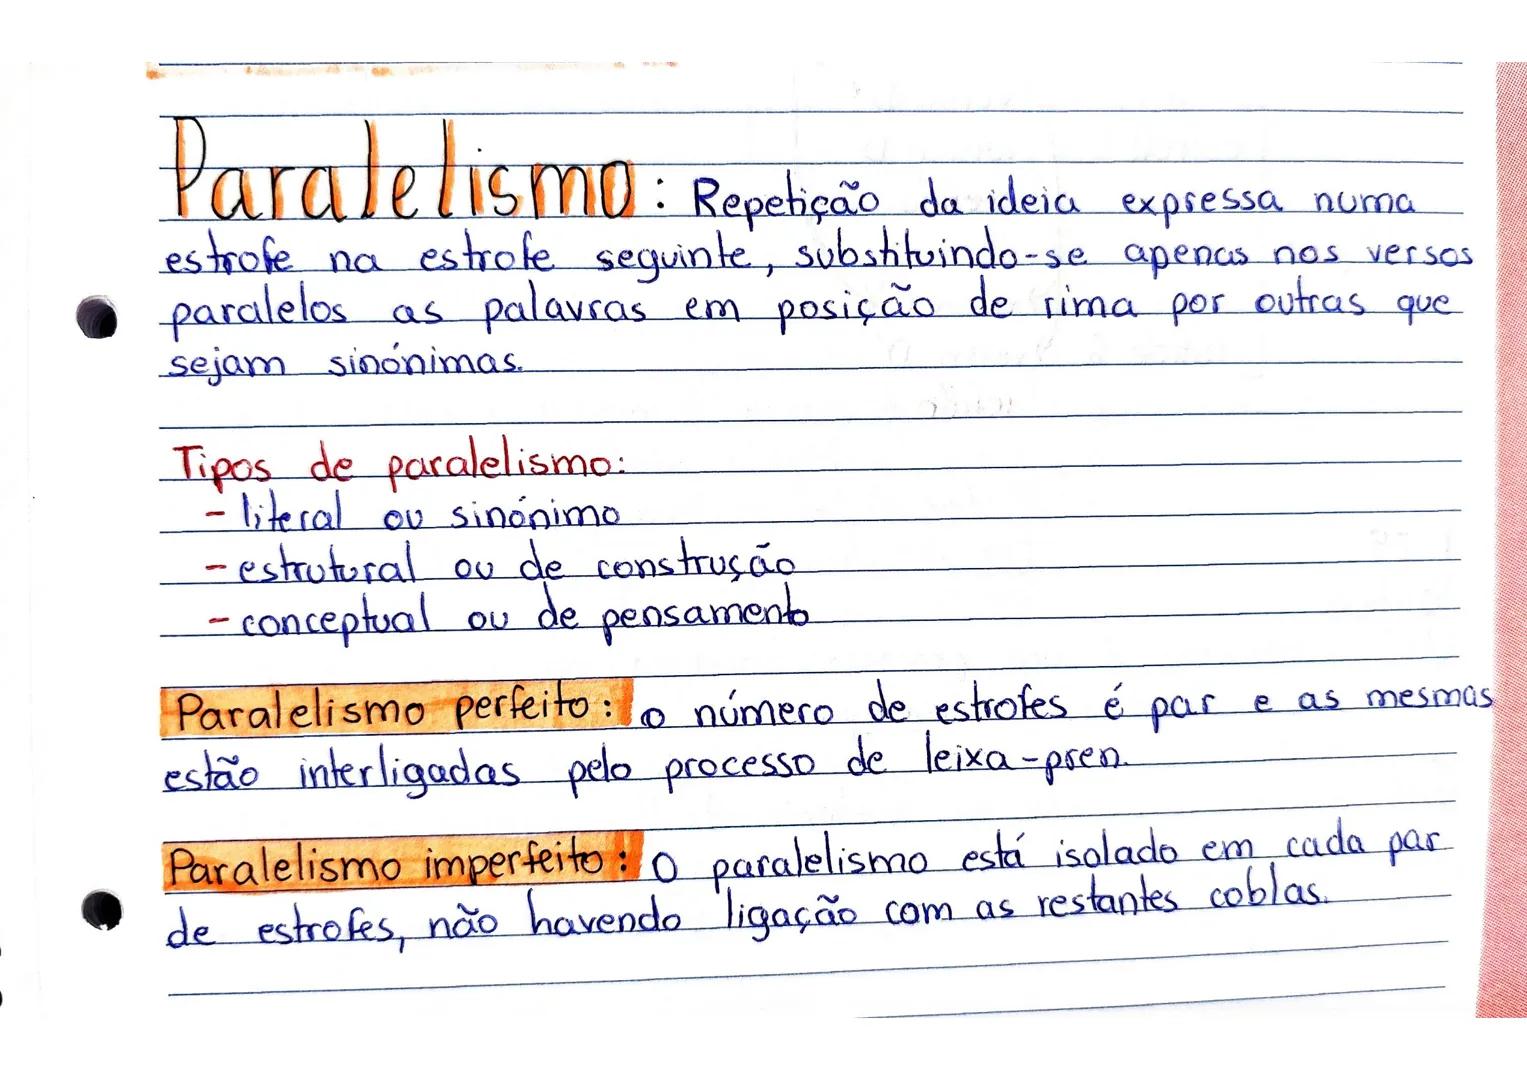 Paralelismo: Repetição da ideia expressa numa
estrofe na estrofe seguinte, substituindo-se apenas nos versos
paralelos as palavras em posição de rima por outras que
sejam sinónimas.
Tipos de paralelismo:
- literal ou sinónimo
- estrutural ou de construção
- conceptual ou de pensamento
Paralelismo perfeito: o número de estrofes é par e as mesmas
estão interligadas pelo processo de leixa-pren.
Paralelismo imperfeito: O paralelismo está isolado em cada par
de estrofes, não havendo ligação com as restantes coblas.